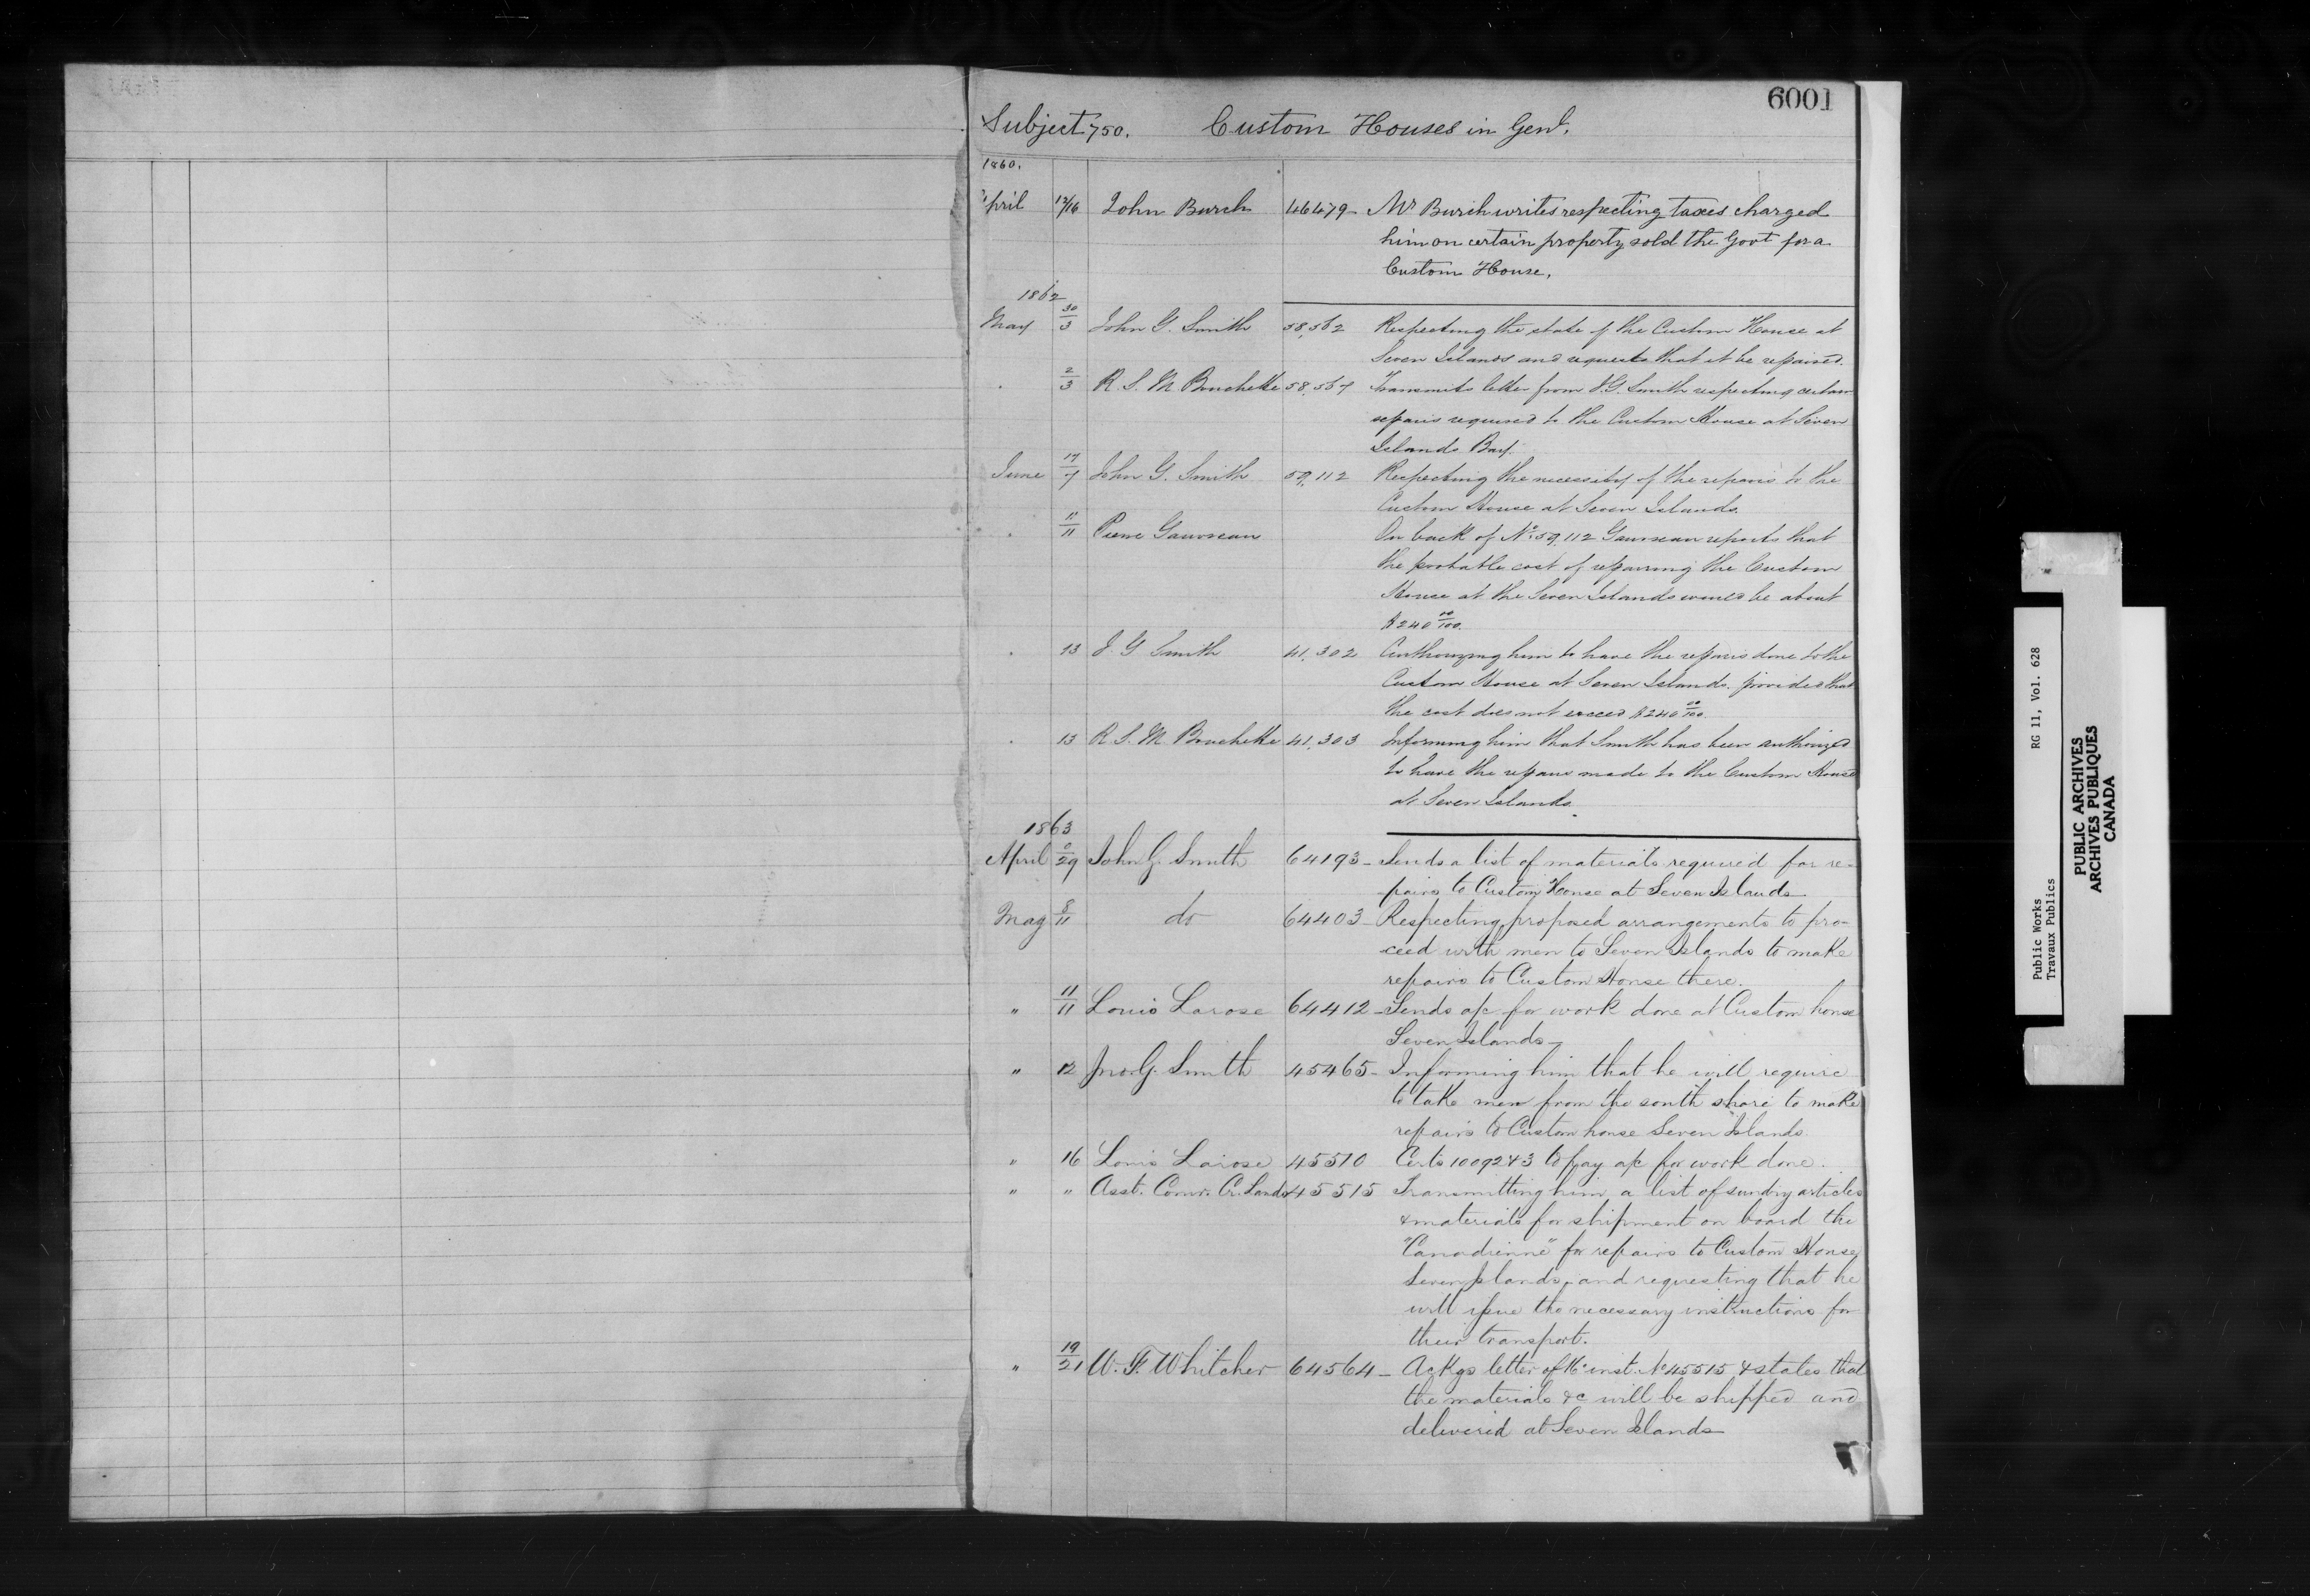 6001
Subject 750. Custom Houses in Genl.
1860.
April 12/16 John Burch 46479 - Mr Burch writes respecting taxes charged
him on certain property sold the Govt for a
Custom House.
1862
May 30/3 John G. Smith 58,562 Respecting the state of the Custom House at
Seven Islands and requests that it be repaired.
. 2/3 R. S. M Bouchette 58,567 Transmits letter from J G. Smith respecting certain
repairs required to the Custom House at Seven
Islands Bay.
June 17/7 John G. Smith 59,112 Respecting the necessity of the repairs to the
Custom House at Seven Islands.
. 11/11 Pierre Gauvreau On back of No. 59,112 Gauvreau reports that
the probable cost of repairing the Custom
House at the Seven Islands would be about
$240 00/100.
. 13 J. G Smith 41,302 Authorizing him to have the repairs done to the
Custom House at Seven Islands. provided that
the cost does not exceed $240 00/100.
. 13 R. S. M. Bouchette 41,303 Informing him that Smith has been authorized
to have the repairs made to the Custom House
at Seven Islands.
1863
April /29 John G. Smith 64193 - Sends a list of materials required for re-
pairs to Custom House at Seven Islands
May 8/11 do 64403 - Respecting proposed arrangements to pro-
ceed with men to Seven Islands to make
repairs to Custom House there.
" 11/11 Louis Larose 64412 - Sends a/c for work done at Custom house
Seven Islands -
" 12 Jno. G. Smith 45465 - Informing him that he will require
to take men from the south shore to make
repairs to Custom house Seven Islands.
" 16 Louis Larose 45510 Certs 10092 & 3 to pay a/c for work done.
" " Asst. Comr. Cr. Lands 45515 Transmitting him a list of sundry articles
& materials for shipment on board the
"Canadienne" for repairs to Custom House
Seven Islands, and requesting that he
will issue the necessary instructions for
their transport.
" 19/21 W. F. Whitcher 64564 - Ackgs letter of 16 inst. No 45515 & states that
the materials &c will be shipped and
delivered at Seven Islands
Public Works RG 11, Vol. 628
Travaux Publics
PUBLIC ARCHIVES
ARCHIVES PUBLIQUES
CANADA